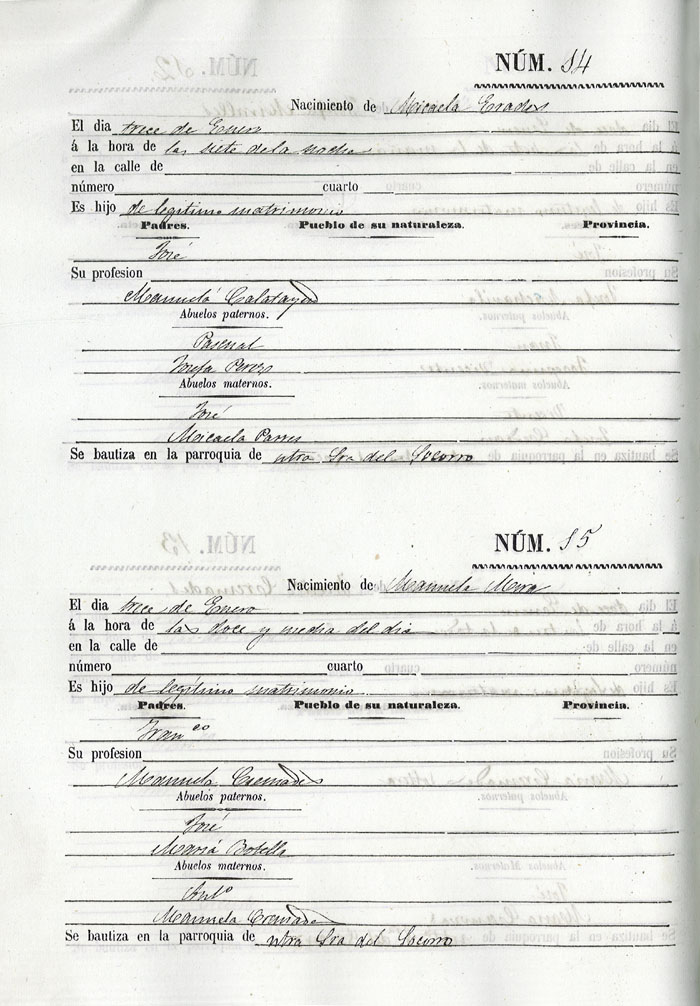 NÚM. 14
Nacimiento de Micaela Grades
El dia trece de Enero
á la hora de las siete de la noche
en la calle de
número cuarto
Es hijo de legitimo matrimonio
Padres. Pueblo de su naturaleza. Provincia.
José
Su profesion
Manuela Calatayud
Abuelos paternos.
Pascual
Josefa Perez
Abuelos maternos.
José
Micaela Parres
Se bautiza en la parroquia de ntra Sra del Socorro
NÚM. 15
Nacimiento de Manuela Mira
El dia trece de Enero
á la hora de las doce y media del dia
en la calle de
número cuarto
Es hijo de legitimo matrimonio
Padres. Pueblo de su naturaleza. Provincia.
Franco
Su profesion
Manuela Cremades
Abuelos paternos.
José
Maria Botella
Abuelos maternos.
Anto
Manuela Cremades
Se bautiza en la parroquia de ntra Sra del Socorro